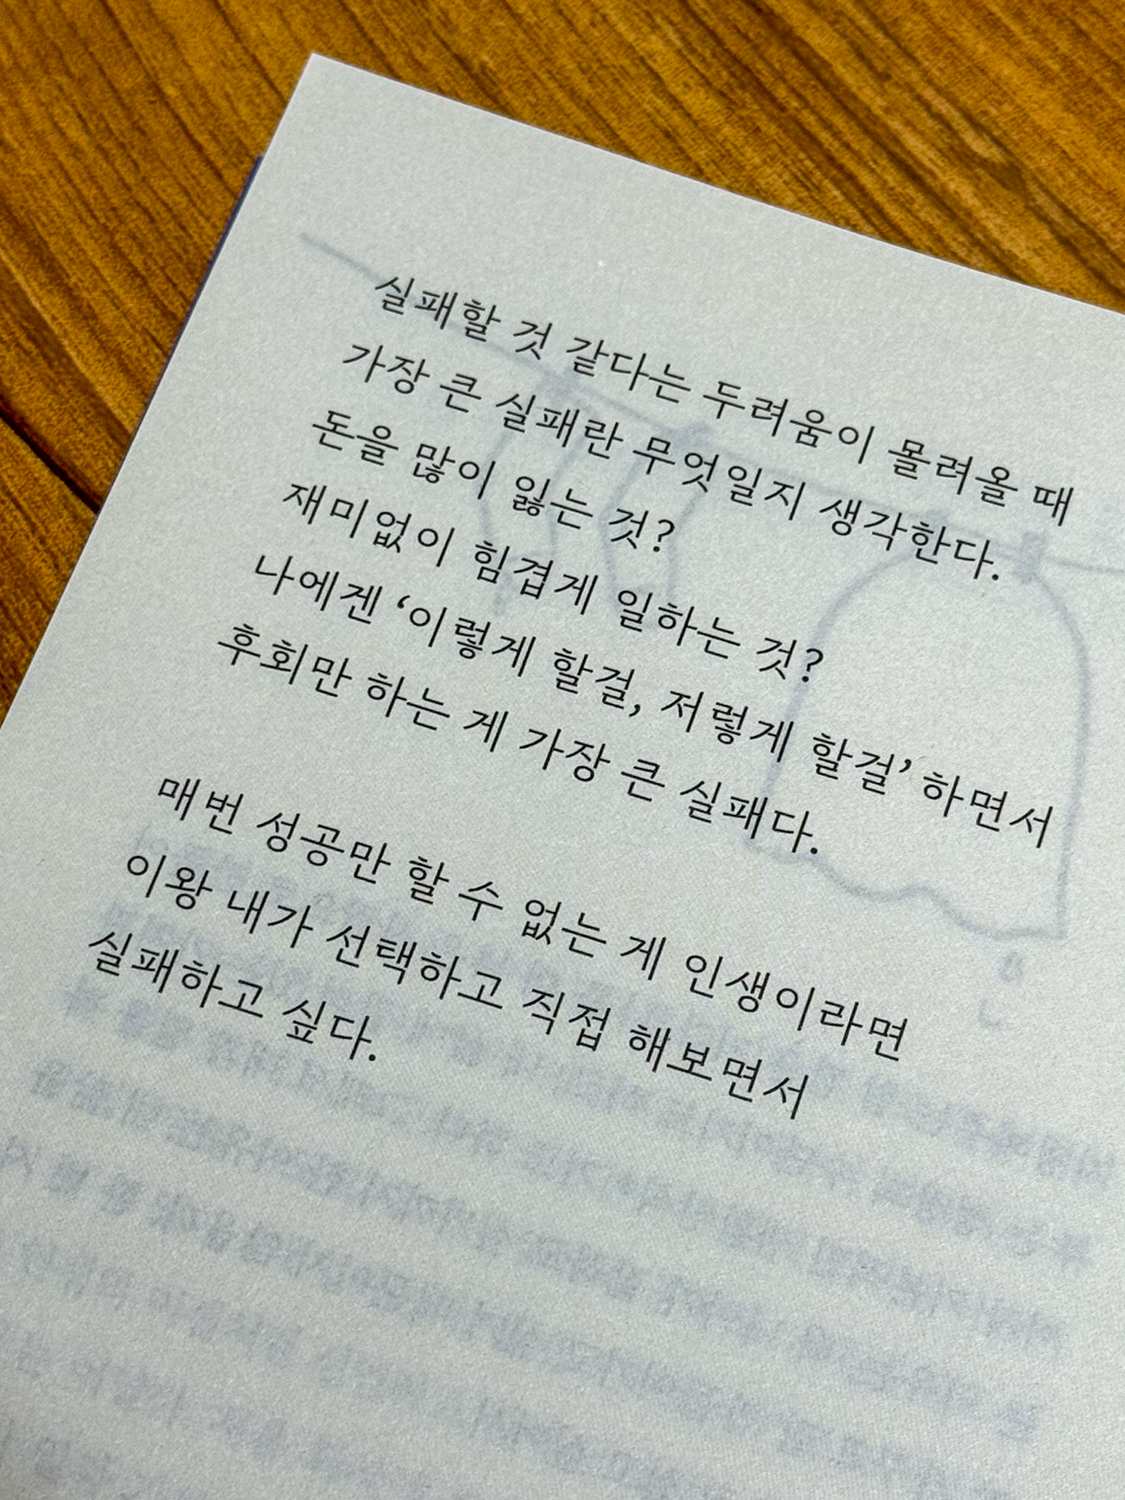 실패할 것 같다는 두려움이 몰려올 때
가장 큰 실패란 무엇일지 생각한다.
돈을 많이 잃는 것?
재미없이 힘겹게 일하는 것?
나에겐 ‘이렇게 할걸, 저렇게 할걸’ 하면서
후회만 하는 게 가장 큰 실패다.
매번 성공만 할 수 없는 게 인생이라면
이왕 내가 선택하고 직접 해보면서
실패하고 싶다.